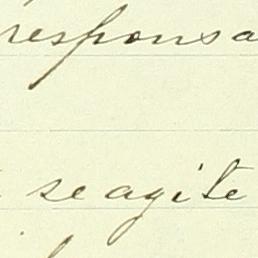 responsa
se agite